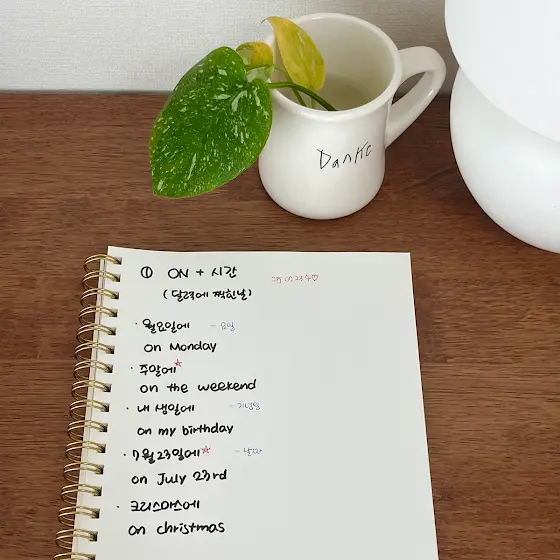 Danke
① ON + 시간
(달력에 찍힌날)
· 월요일에 - 요일
on Monday
· 주말에☆
on the weekend
· 내 생일에 - 기념일
on my birthday
· 7월 23일에☆ - 날짜
on July 23rd
· 크리스마스에
on christmas